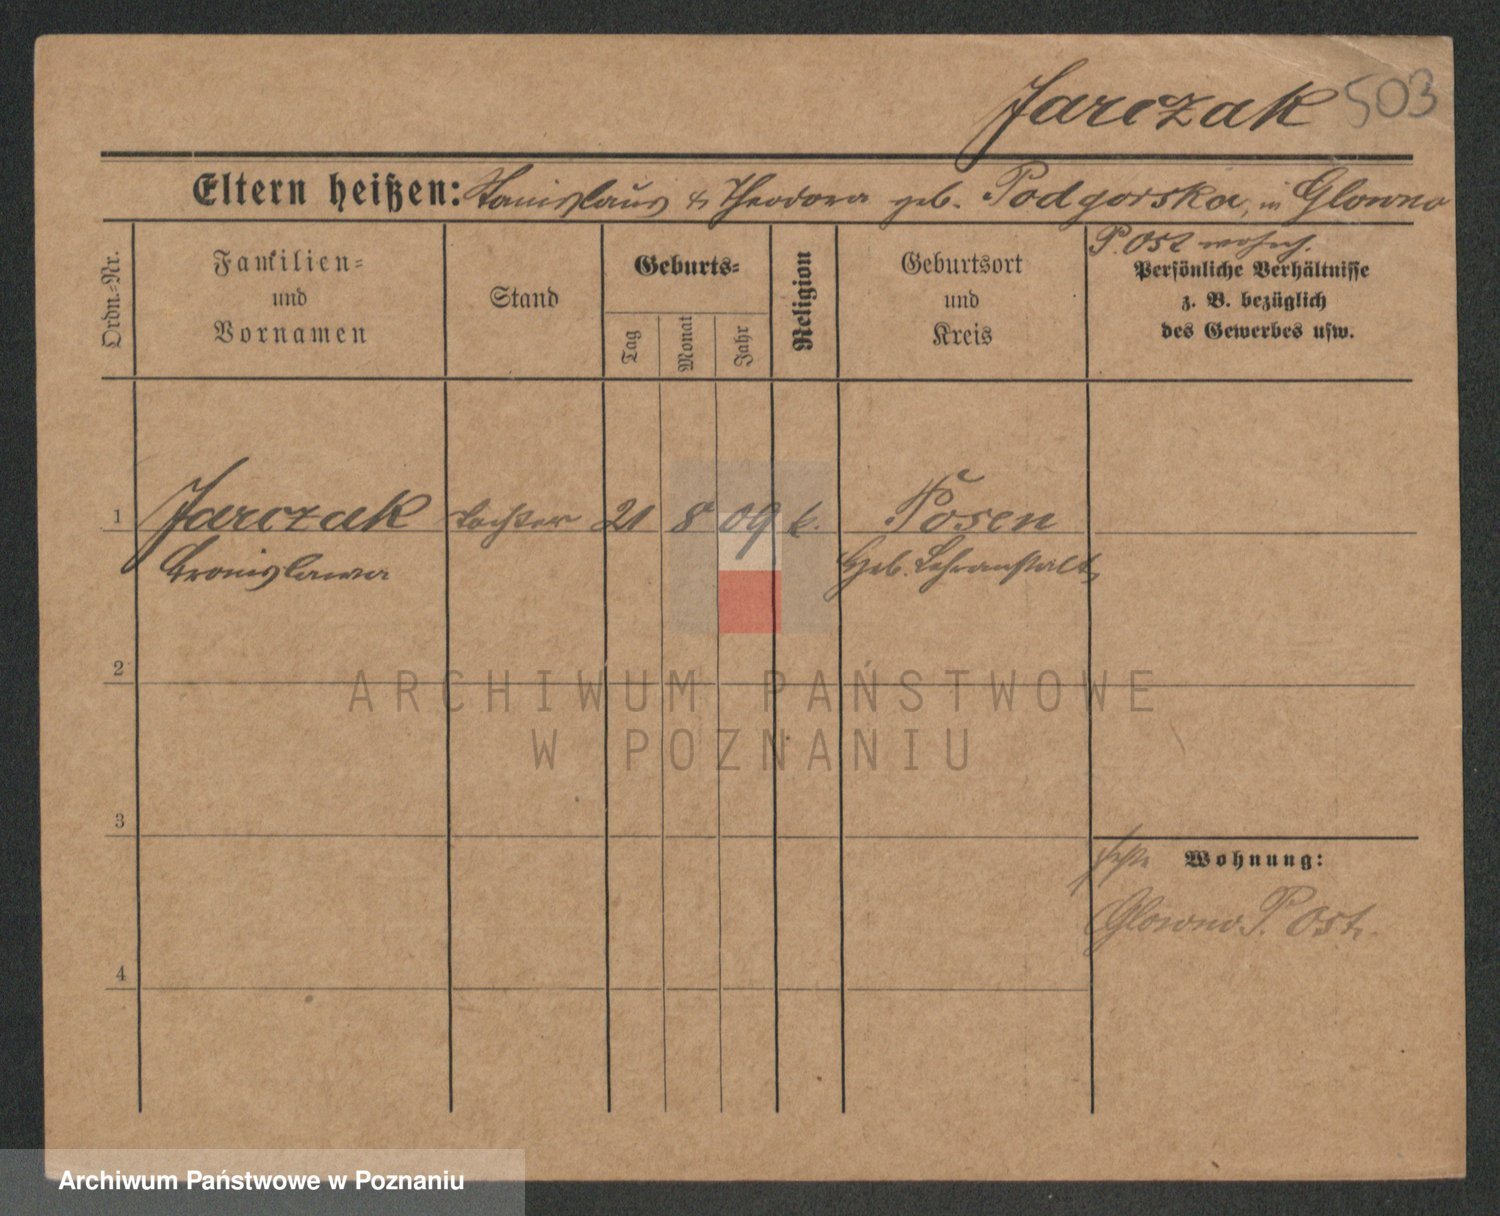 Jarczak 503
Eltern heißen: Stanislaus & Theodora geb. Podgorska, in Glowno
P. Ost wohnh.
Ordn.-Nr.
Familien-
und
Vornamen
Stand
Geburts-
Tag
Monat
Jahr
Religion
Geburtsort
und
Kreis
Persönliche Verhältnisse
z. B. bezüglich
des Gewerbes usw.
1 Jarczak Tochter 21 8 09 k. Posen
Bronislawa Geb. Lehranstalt
2
ARCHIWUM PAŃSTWOWE
W POZNANIU
3
Wohnung:
Glowno P. Ost.
4
Archiwum Państwowe w Poznaniu